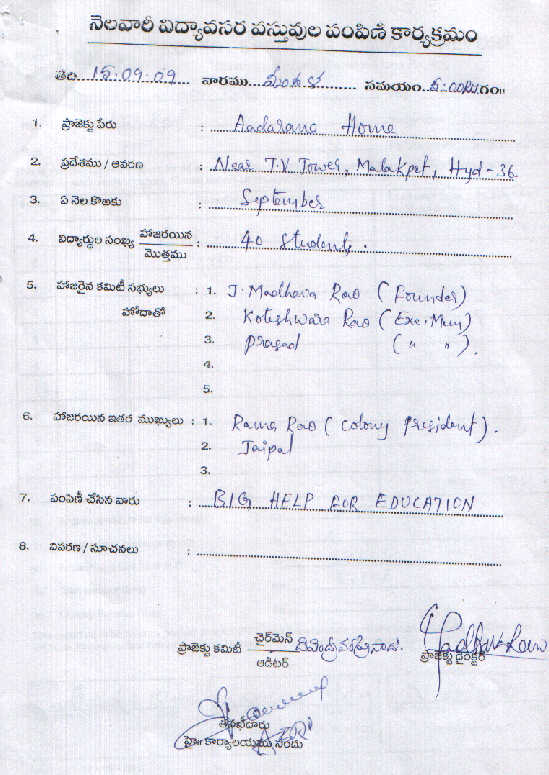 నెలవారీ విద్యావసర వస్తువుల పంపిణీ కార్యక్రమం
తేది 15.09.09 వారము మంగళ సమయం 5:00 గం॥
1. ప్రాజెక్టు పేరు : Aadarana Home
2. ప్రదేశము / ఆవరణ : Near T.V Tower, Malakpet, Hyd-36
3. ఏ నెల కొఱకు : September
4. విద్యార్థుల సంఖ్య హాజరయిన / మొత్తము : 40 Students.
5. హాజరైన కమిటీ సభ్యులు : 1. J. Madhava Rao (Founder)
హోదాతో 2. Koteshwara Rao (Exe. Mem)
3. Prasad ( " " ).
4.
5.
6. హాజరయిన ఇతర ముఖ్యులు : 1. Rama Rao (colony President).
2. Jaipal
3.
7. పంపిణీ చేసిన వారు : BIG HELP FOR EDUCATION
8. వివరణ / సూచనలు :
ప్రాజెక్టు కమిటీ చైర్‌మెన్ / ఆడిటర్
ప్రాజెక్టు డైరెక్టర్